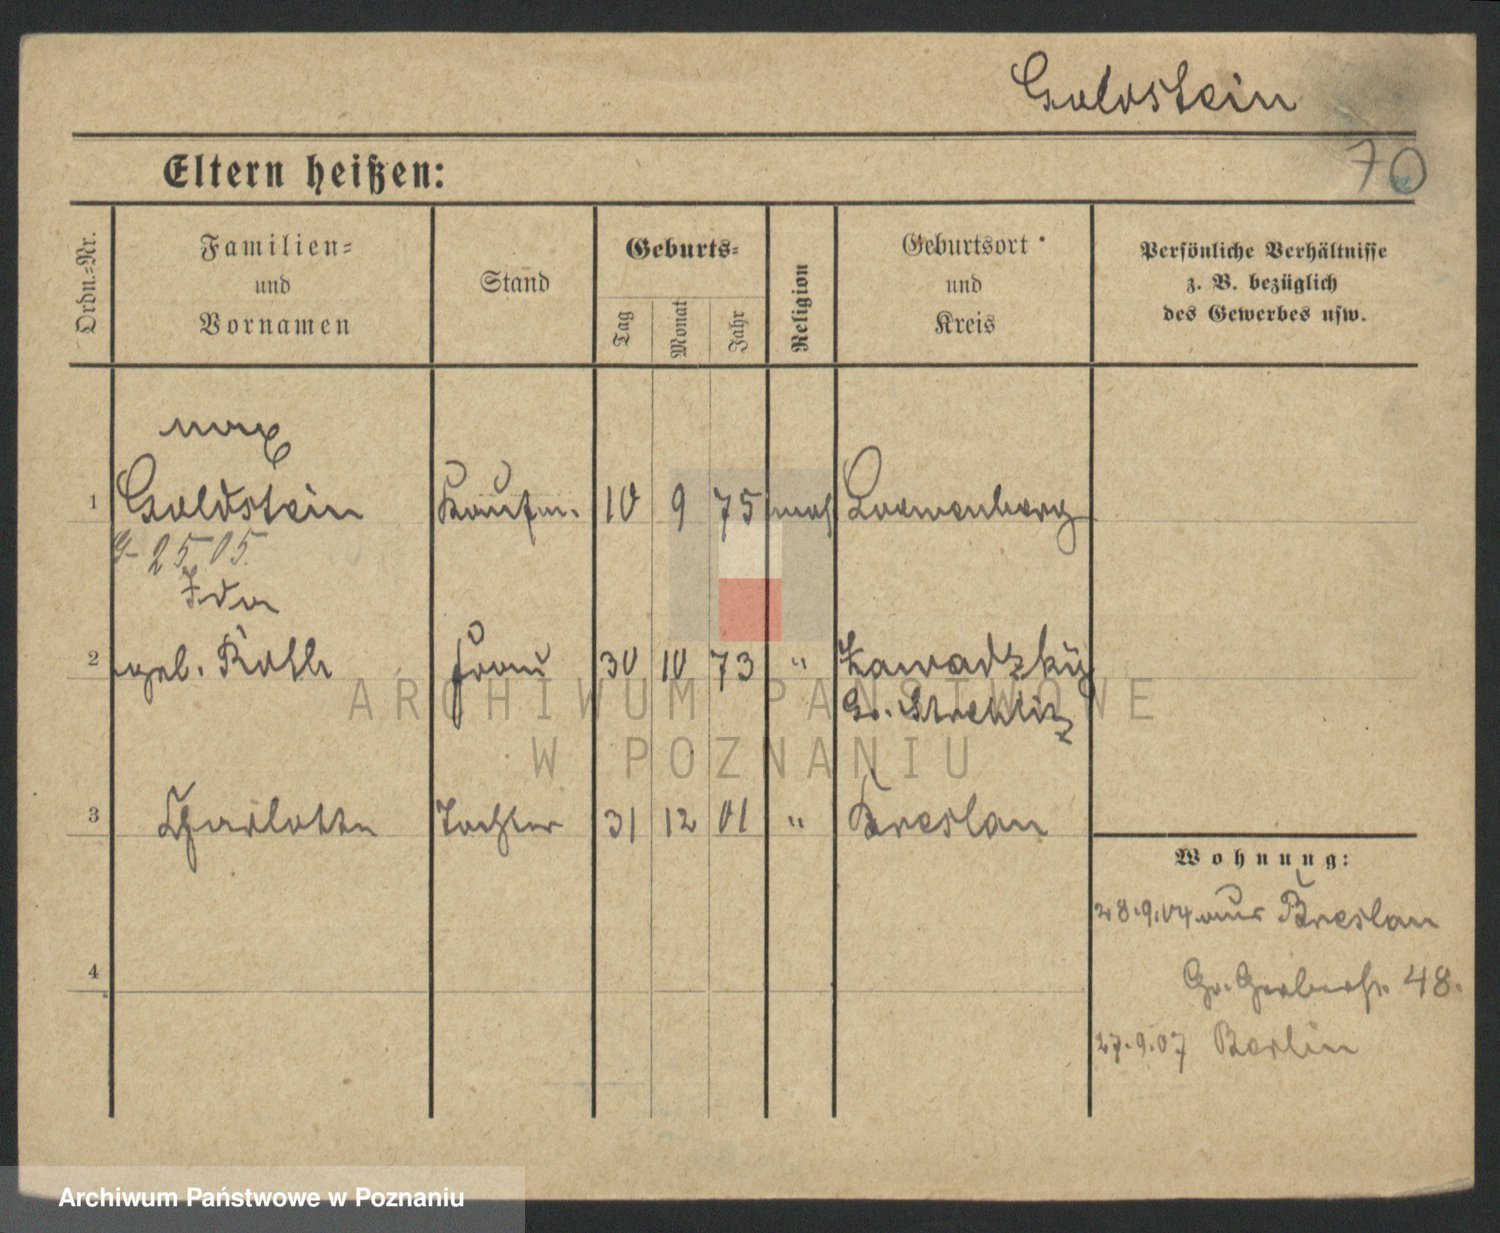 Goldstein
70
Eltern heißen:
Ordn.-Nr.
Familien-
und
Vornamen
Stand
Geburts-
Tag
Monat
Jahr
Religion
Geburtsort
und
Kreis
Persönliche Verhältnisse
z. B. bezüglich
des Gewerbes usw.
Max
1 Goldstein Kaufm. 10 9 75 mos Loewenberg
25 05
Ida
2 geb. Roth Frau 30 10 73 " Zawadzky
Gr. Strehlitz
3 Charlotte Tochter 31 12 01 " Breslau
Wohnung:
28.9.04 aus Breslau
4
Gr. Gerberstr. 48.
27.9.07 Berlin
ARCHIWUM PAŃSTWOWE
W POZNANIU
Archiwum Państwowe w Poznaniu